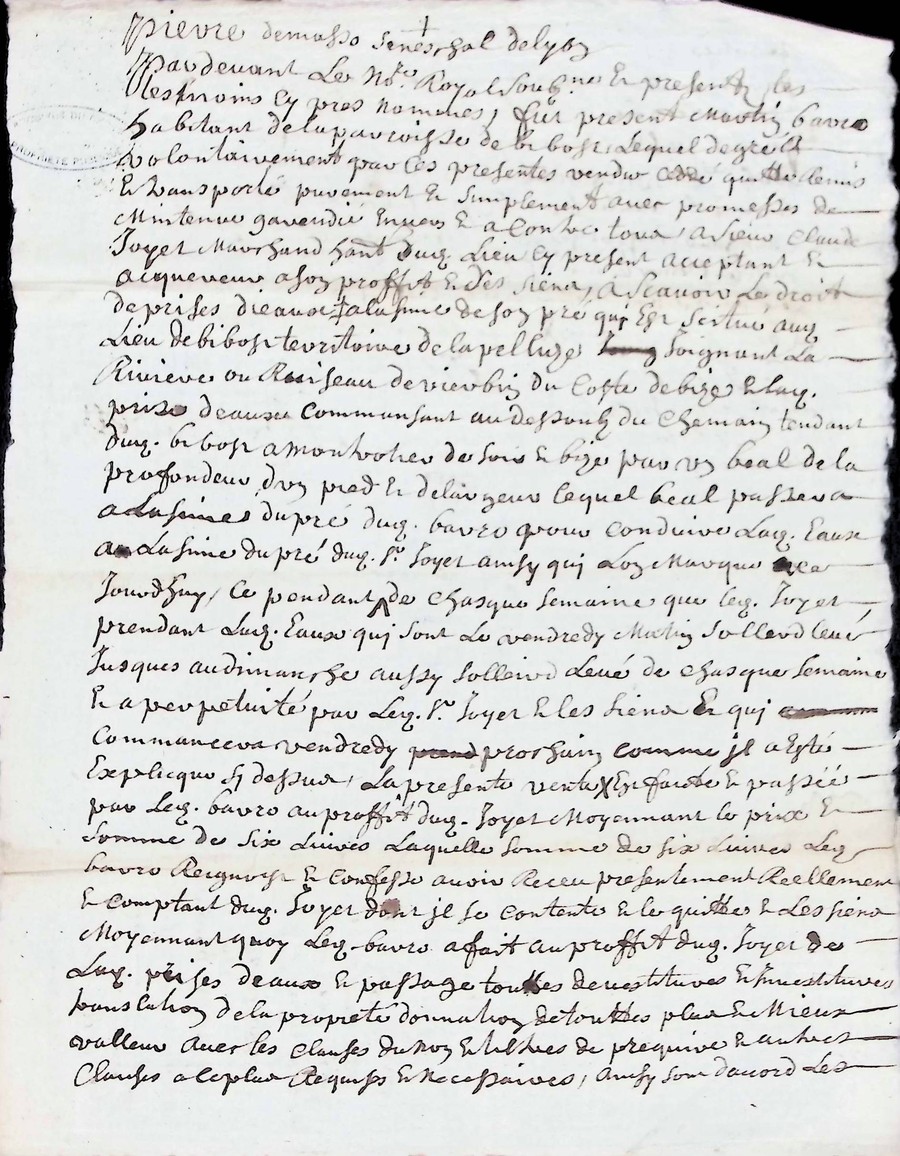 pierre demasso seneschal delyon
pardevant Le No.re Royal soub.ne Et presentz les
tesmoins cy pres nommes, fut present Martin bavro
habitant delaparroisse de bibost, Lequel degré &
volontairement par ces presentes vendu cedé quitte Remis
Et transporté purement Et simplement avec promesses de
Mintenue garendié Envers Et a Contre tous, a sieur Claude
Joyet Marchand hant dug. Lieu cy present aceptant Et
acquereur a son proffit Et des siens, A Scavoir Le droit
deprises dieaux + alasime de son pré qui Est scitué aug
Lieu debibost territoire de lapelluze soignant La
Riviere ou Ruiseau devierbin du Coste debize Et laq.
prise deauxu commansant audessoub du Chemain tendant
dug. bibost amontrotier de soir Et bize par un beal de la
profondeur d'un pied Et delargeur lequel beal passera
alasimes dupré dug. bavro pour conduire Laq. Eaux
a Lasime dupré dug. Sr. Joyet ainsy qui Lon Marque
Jourdhuy, Ce pendant de chasque semaine que leq. Joyet
prendant Laq. Eaux qui sont Le vendredy Matin solleid levé
Jusques audimanche aussy solleird Levé de chasque semaine
Et a perpetuité par Leq. Sr. Joyet Et les siens Et qui
Commancera vendredy prochain comme jl a Esté
Explicque sy dessus, La presente vente Est faicte Et passéé
par Leq. bavro auproffit dug. Joyet Moyennant le prix Et
somme de six Livres Laquelle somme de six Livres Leq
bavro Reignoist Et Confesse avoir Receu presentement Reellement
Et comptant dug. Joyet dont jl se contente Et le quitte Et Les siens
Moyennant quoy Leq. bavro a fait au proffit dug. Joyet de
Laq. prises deaux Et passage touttes devestitures Et Jnvestitures
translation de la propreté donnation de touttes plus Et Mieux
valleur avec les clauses du Et tiltres de prequire Et autres
Clauses a ce plus Requises Et Necessaires, Ainsy sont dacord Les